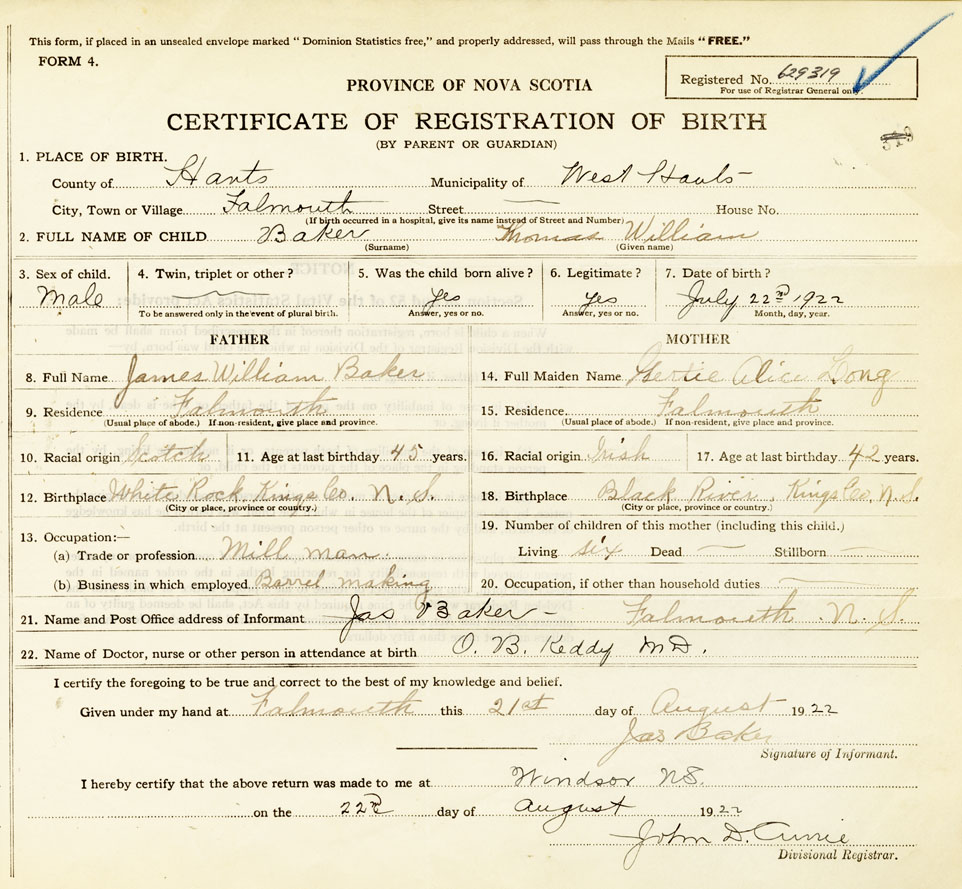 This form, if placed in an unsealed envelope marked "Dominion Statistics free," and properly addressed, will pass through the Mails "FREE."
FORM 4.
Registered No. 629319
For use of Registrar General only.
PROVINCE OF NOVA SCOTIA
CERTIFICATE OF REGISTRATION OF BIRTH
(BY PARENT OR GUARDIAN)
1. PLACE OF BIRTH.
County of Hants Municipality of West Hants
City, Town or Village Falmouth Street — House No.
(If birth occurred in a hospital, give its name instead of Street and Number)
2. FULL NAME OF CHILD Baker Thomas William
(Surname) (Given name)
3. Sex of child. 4. Twin, triplet or other? 5. Was the child born alive? 6. Legitimate? 7. Date of birth?
Male — yes yes July 22nd 1922
To be answered only in the event of plural birth. Answer, yes or no. Answer, yes or no. Month, day, year.
FATHER MOTHER
8. Full Name James William Baker 14. Full Maiden Name Gertie Alice Long
9. Residence Falmouth 15. Residence Falmouth
(Usual place of abode.) If non-resident, give place and province. (Usual place of abode.) If non-resident, give place and province.
10. Racial origin Scotch 11. Age at last birthday 45 years. 16. Racial origin Irish 17. Age at last birthday 42 years.
12. Birthplace White Rock Kings Co. N. S. 18. Birthplace Black River, Kings Co, N.S.
(City or place, province or country.) (City or place, province or country.)
13. Occupation:— 19. Number of children of this mother (including this child.)
(a) Trade or profession Mill man Living six Dead — Stillborn —
(b) Business in which employed Barrel making 20. Occupation, if other than household duties —
21. Name and Post Office address of Informant Jas Baker - Falmouth. N. S.
22. Name of Doctor, nurse or other person in attendance at birth O. B. Keddy M D.
I certify the foregoing to be true and correct to the best of my knowledge and belief.
Given under my hand at Falmouth this 21st day of August 1922
Jas Baker
Signature of Informant.
I hereby certify that the above return was made to me at Windsor NS.
on the 22nd day of August 1922
John D. Currie
Divisional Registrar.